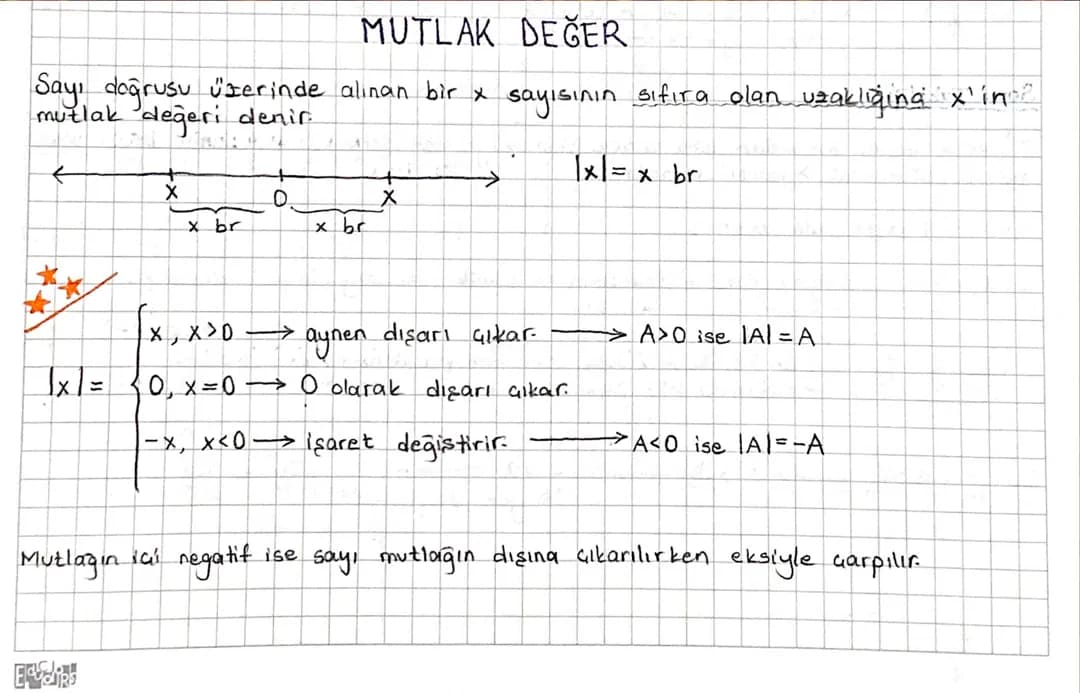 MUTLAK DEĞER
Sayı doğrusu üzerinde alınan bir x sayısının sıfıra olan uzaklığına x'in
mutlak değeri denir.
|x| = x br
x 0 x
x br x br
x, x>0 → aynen dışarı çıkar. → A>0 ise |A| = A
|x| = { 0, x=0 → 0 olarak dışarı çıkar.
-x, x<0 → işaret değiştirir. → A<0 ise |A| = -A
Mutlağın içi negatif ise sayı mutlağın dışına çıkarılırken eksiyle çarpılır.